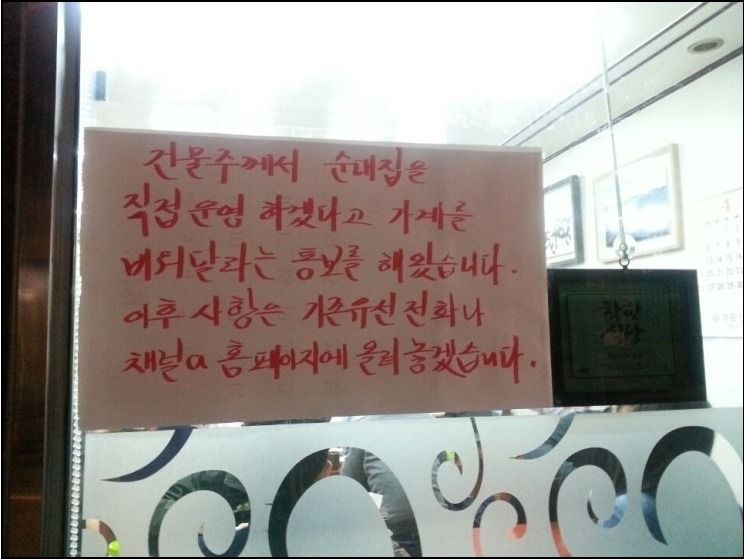 건물주께서 순대집을
직접 운영 하겠다고 가게를
비워달라는 통보를 해왔습니다.
이후 사항은 기존유선전화나
채널a 홈페이지에 올려놓겠습니다.
착한
식당
4